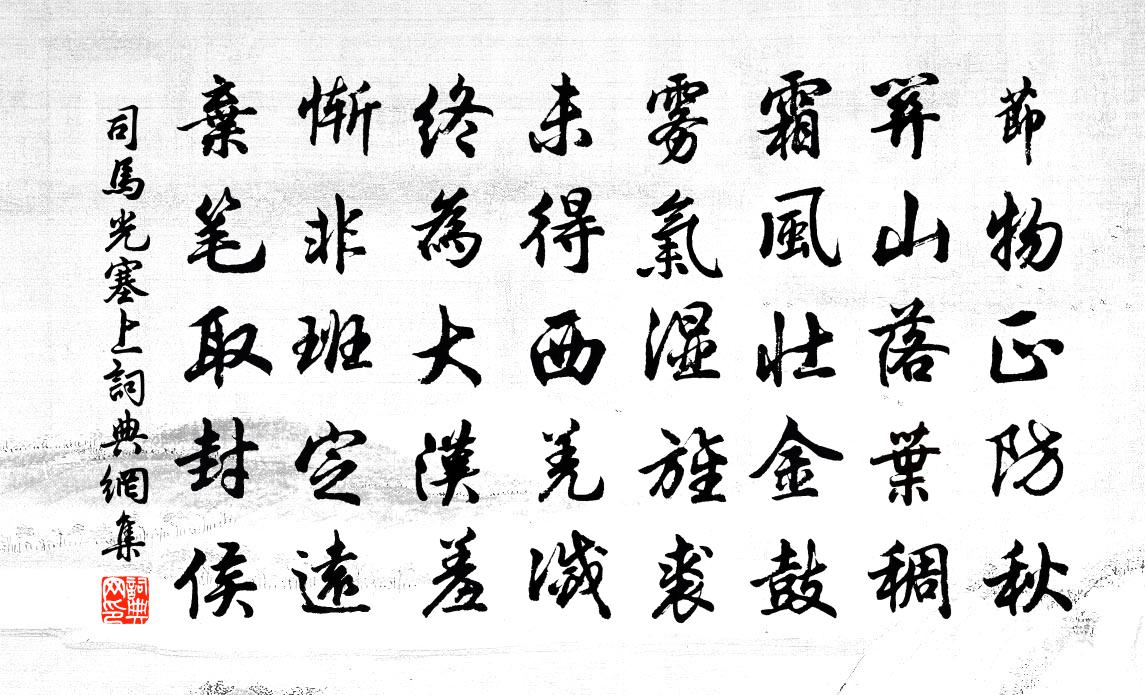 節物正防秋
關山落葉稠
霜風壯金鼓
霧氣濕旌裘
未得西羌滅
終為大漢羞
慚非班定遠
棄笔取封侯
司馬光塞上詞典網集
詞典网印